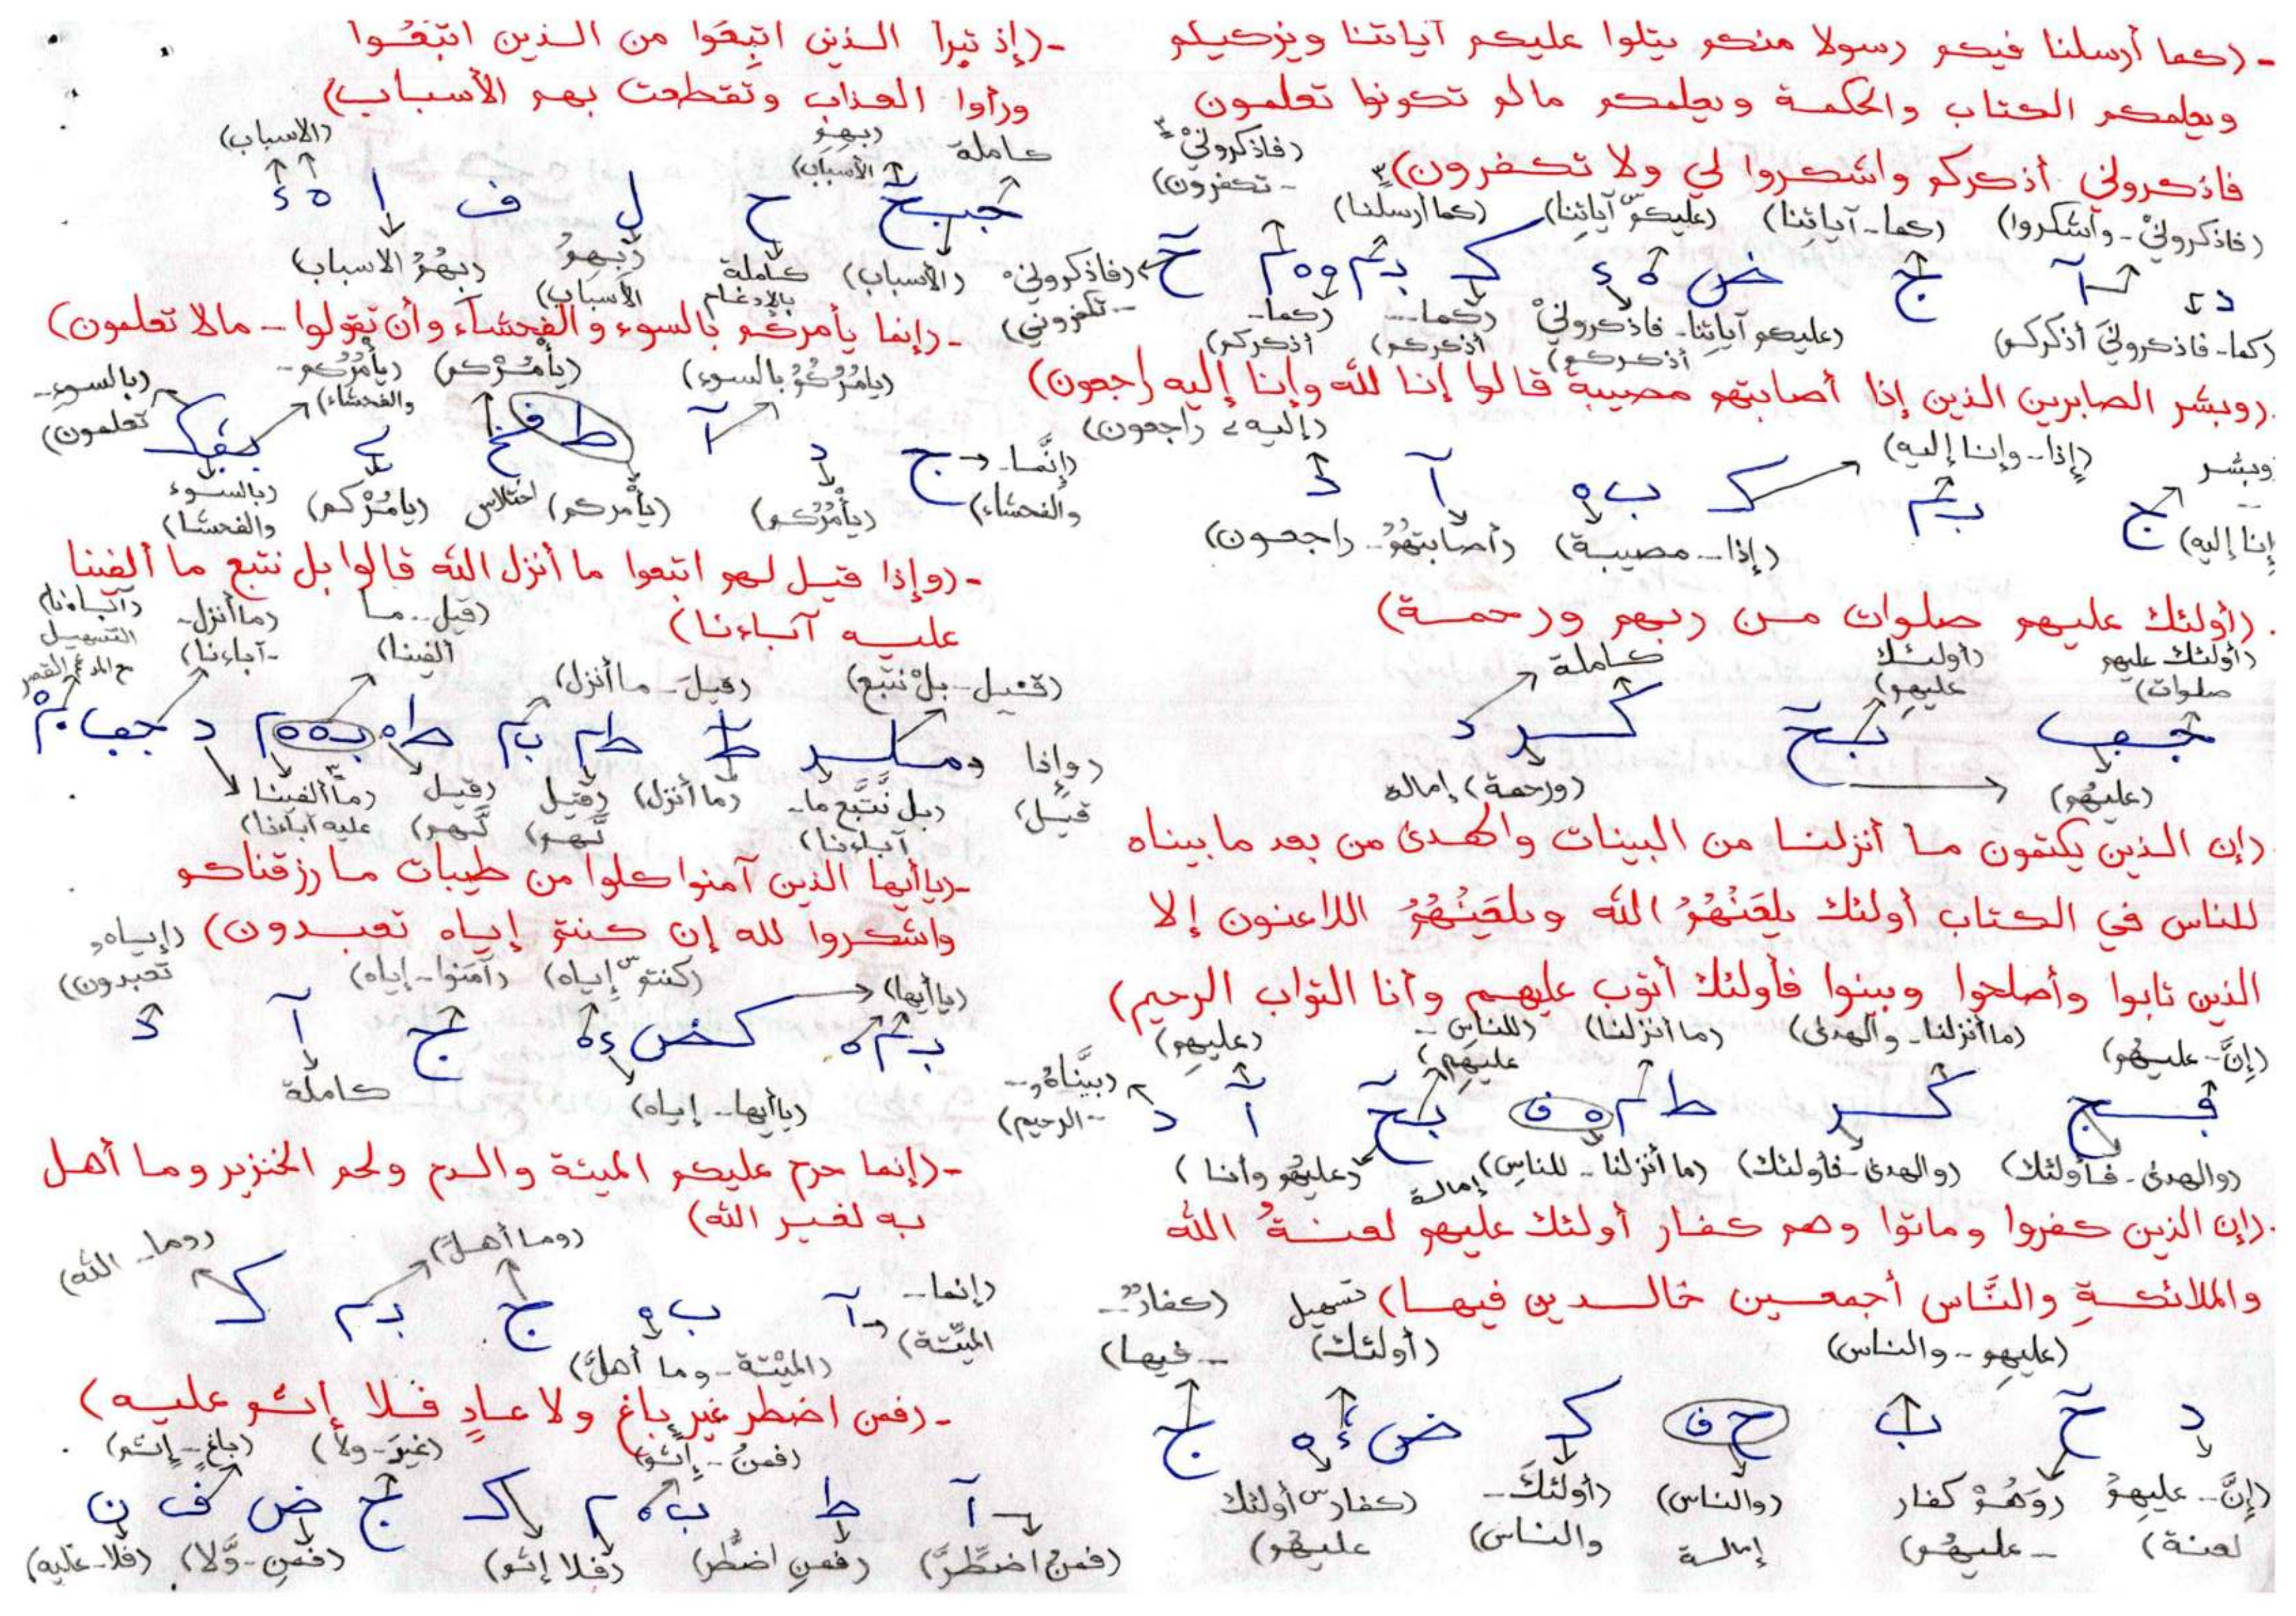 - (كما أرسلنا فيكم رسولا منكم يتلوا عليكم آياتنا ويزكيكم
ويعلمكم الكتاب والحكمة ويعلمكم مالم تكونوا تعلمون
فاذكروني أذكركم واشكروا لي ولا تكفرون)
(فاذكروني - تكفرون)
(فاذكروني - واشكروا) (كما - آياتنا) (عليكم آياتنا) (كما أرسلنا)
(كما - فاذكروني أذكركم) (عليكم آياتنا - فاذكروني أذكركم) (كما - أذكركم) (كما - أذكركم) (فاذكروني - تكفروني)
(وبشر الصابرين الذين إذا أصابتهم مصيبة قالوا إنا لله وإنا إليه راجعون)
وبشر -- إنا إليه) (إذا - وإنا إليه) (إليه راجعون)
ج بم ك ب ه آ د
(إذا - مصيبة) (أصابتهم - راجعون)
(أولئك عليهم صلوات من ربهم ورحمة)
(أولئك عليهم صلوات) (أولئك عليهم) كاملة
(عليهم) (ورحمة) إمالة
(إن الذين يكتمون ما أنزلنا من البينات والهدى من بعد ما بيناه
للناس في الكتاب أولئك يلعَنُهُمُ الله ويلعَنُهُمُ اللاعنون إلا
الذين تابوا وأصلحوا وبينوا فأولئك أتوب عليهم وأنا التواب الرحيم)
(إنَّ - عليهم) (ما أنزلنا - والهدى) (ما أنزلنا) (للناس - عليهم) (عليهم) (بيَّناهُ - الرحيم)
(والهدى - فأولئك) (والهدى - فأولئك) (ما أنزلنا - للناس) إمالة (عليهم وأنا)
(إن الذين كفروا وماتوا وهم كفار أولئك عليهم لعنةُ الله
والملائكةِ والنَّاس أجمعين خالدين فيها)
(عليهم - والناس) تسهيل (أولئك) (كفار - فيها)
د ح ب ح ف ك ض ء ه ج
(إنَّ - عليهم لعنة) (وهم كفار - عليهم) (والناس) إمالة (أولئك - والناس) (كفار أولئك عليهم)
- (إذ تبرأ الذين اتبِعُوا من الذين اتبَعُوا
ورأوا العذاب وتقطعت بهم الأسباب)
كاملة (بهم الأسباب) (الاسباب)
ح ل ف ا ه ء
(الأسباب) كاملة بالإدغام (بهم الأسباب) (بهم الاسباب)
- (إنما يأمركم بالسوء والفحشاء وأن تقولوا - مالا تعلمون)
(يامركم بالسوء) (يأمركم) (يأمركم - والفحشاء) (بالسوء - تعلمون)
(إنَّما - والفحشاء) (يأمركم) (يأمركم) اختلاس (يامركم) (بالسوء والفحشا)
- (وإذا قيل لهم اتبعوا ما أنزل الله قالوا بل نتبع ما ألفينا
عليه آباءنا)
(قيل - بل نتبع) (قيل - ما أنزل) (قيل - ما ألفينا) (ما أنزل - آباءنا) (آباءنا) التسهيل مع المد والقصر
(وإذا قيل) (بل نتبع ما - آباءنا) (ما أنزل) (قيل لهم) (قيل لهم) (ما ألفينا عليه آباءنا)
- (ياأيها الذين آمنوا كلوا من طيبات ما رزقناكم
واشكروا لله إن كنتم إياه تعبدون)
(إياه تعبدون)
(ياأيها) (كنتم إياه) (آمنوا - إياه)
(ياأيها - إياه) كاملة
- (إنما حرم عليكم الميتة والدم ولحم الخنزير وما أهل
به لغير الله)
(إنما - الميتة) (وما أهل) (وما - الله)
آ ب ه ج بم ك
(الميتة - وما أهلَّ)
- (فمن اضطر غير باغ ولا عادٍ فلا إثم عليه)
(فمن - إثم) (غير - ولا) (باغ - إثم)
آ ط ب ه م ك ج ض ف ن
(فمن اضطر) (فمن اضطر) (فلا إثم) (فمن - ولا) (فلا - عليه)